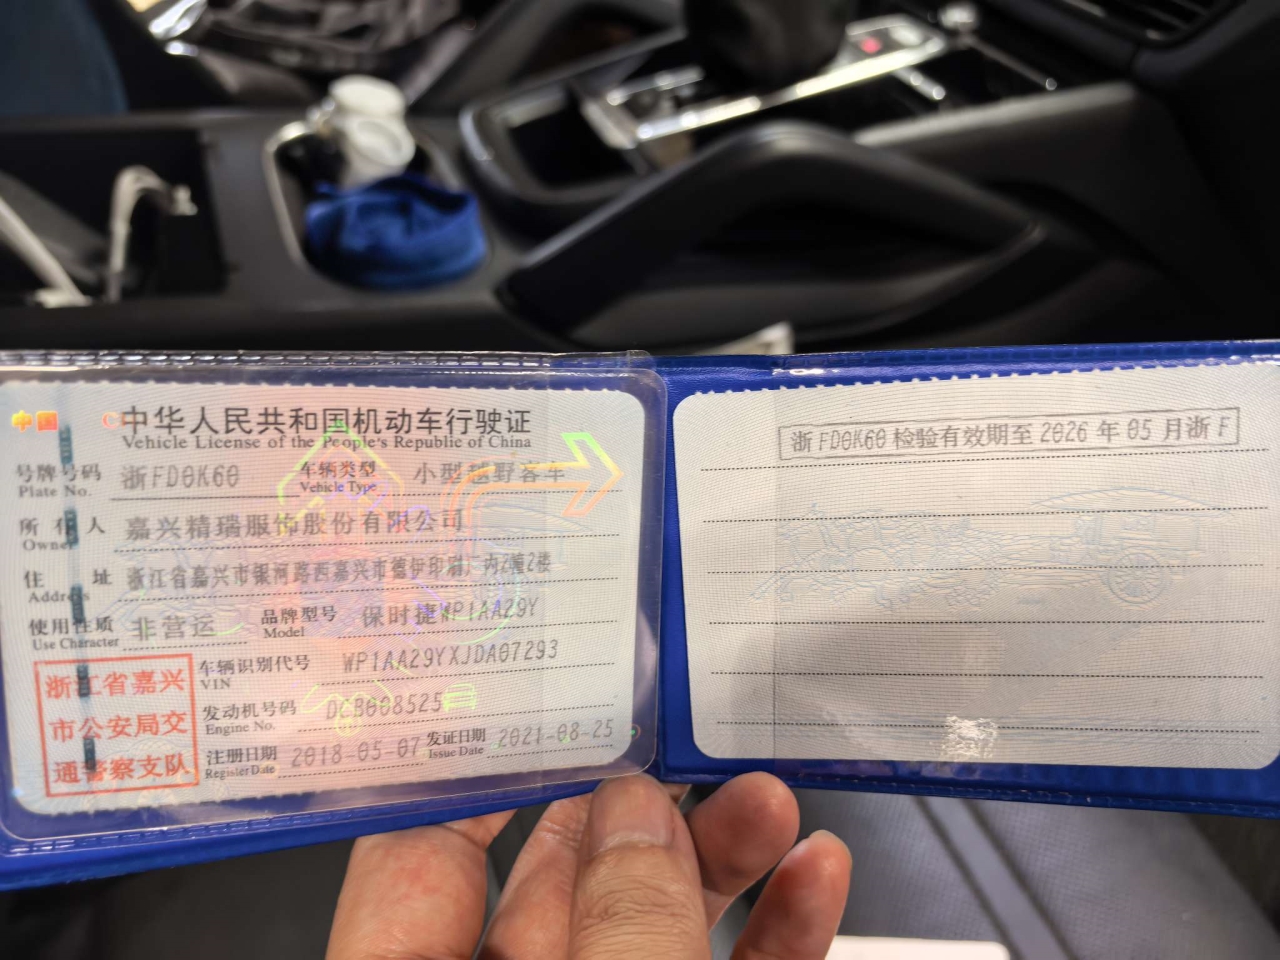 中国
中华人民共和国机动车行驶证
Vehicle License of the People's Republic of China
号牌号码 浙FD0K60 车辆类型 小型越野客车
Plate No. Vehicle Type
所有人 嘉兴精瑞服饰股份有限公司
Owner
住址 浙江省嘉兴市银河路西嘉兴市德伊印刷厂内2幢2楼
Address
使用性质 非营运 品牌型号 保时捷WP1AA29Y
Use Character Model
浙江省嘉兴
市公安局交
通警察支队
车辆识别代号 WP1AA29YXJDA07293
VIN
发动机号码 DCB008525
Engine No.
注册日期 2018-05-07 发证日期 2021-08-25
Register Date Issue Date
浙FD0K60 检验有效期至 2026 年 05 月浙 F